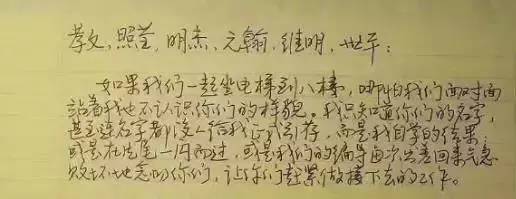 孝文,照堂,明杰,元翰,继明,世平:
如果我们一起坐电梯到八楼,哪怕我们面对面
站着我也不认识你们的样貌。我只知道你们的名字,
甚至连名字都没人给我正式引荐,而是我自学的结果
或是在片尾一闪而过,或是我们的编导每次出差回来气急
败坏地念叨你们,让你们赶紧做接下去的工作。